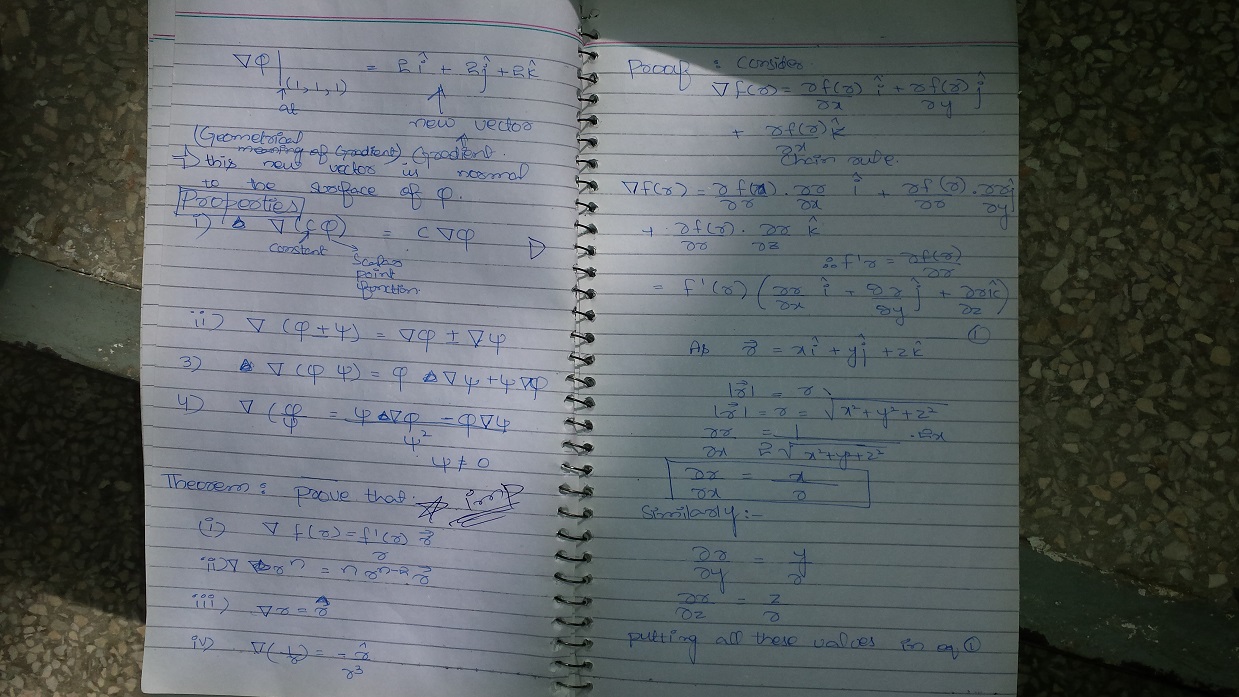 ∇φ|(1,1,1) = 2î + 2ĵ + 2k̂
at
new vector
(Geometrical meaning of Gradient) Gradient.
→ this new vector is normal
to the surface of φ.
Properties
i) ∇(cφ) = c∇φ
constant
Scalar
point
function
ii) ∇(φ ± ψ) = ∇φ ± ∇ψ
3) ∇(φ ψ) = φ ∇ψ + ψ∇φ
4) ∇(φ/ψ = ψ∇φ - φ∇ψ / ψ²
ψ ≠ 0
Theorem: prove that. imp
(i) ∇ f(r) = f'(r)/r r⃗
ii) ∇ rⁿ = n rⁿ⁻² r⃗
iii) ∇r = r̂
iv) ∇(1/r) = -r̂/r³
Proof : Consider
∇f(r) = ∂f(r)/∂x î + ∂f(r)/∂y ĵ
+ ∂f(r)/∂x k̂
Chain rule.
∇f(r) = ∂f(r)/∂r . ∂r/∂x î + ∂f(r)/∂r . ∂r/∂y ĵ
+ ∂f(r)/∂r . ∂r/∂z k̂
∴ f'r = ∂f(r)/∂r
= f'(r) (∂r/∂x î + ∂r/∂y ĵ + ∂r/∂z k̂)
①
As r⃗ = xî + yĵ + zk̂
|r⃗| = r
|r⃗| = r = √x²+y²+z²
∂r/∂x = 1/2√x²+y²+z² .2x
∂r/∂x = x/r
Similarly:-
∂r/∂y = y/r
∂r/∂z = z/r
putting all these values in eq ①